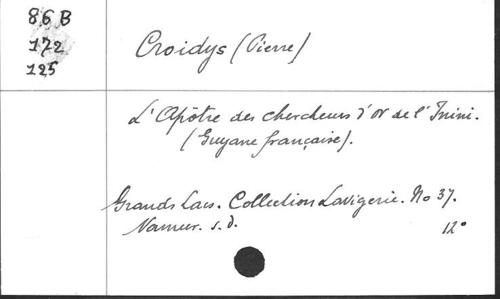 86 B
172
125
Croidys (Pierre)
L'Apôtre des chercheurs d'or de l'Inini.
(Guyane française).
Grands Lacs. Collection Lavigerie. No 37.
Namur. s.d. 12°